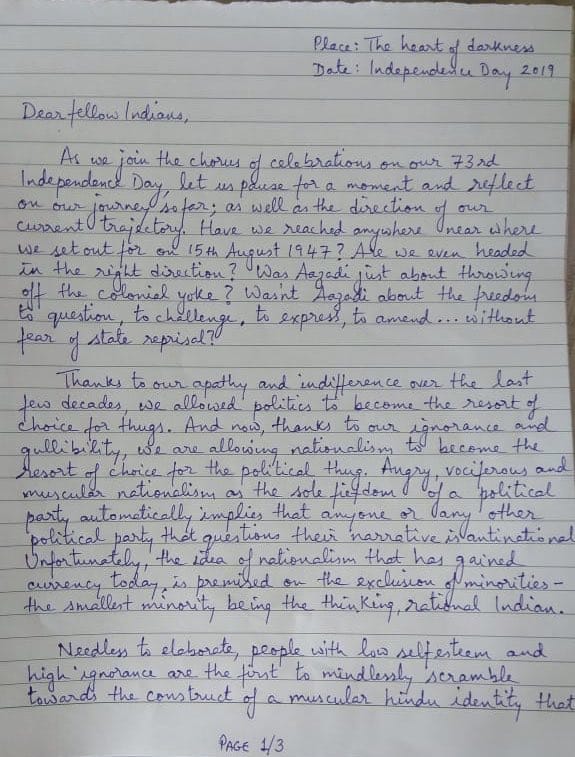 Place: The heart of darkness
Date: Independence Day 2019
Dear fellow Indians,
As we join the chorus of celebrations on our 73rd
Independence Day, let us pause for a moment and reflect
on our journey so far; as well as the direction of our
current trajectory. Have we reached anywhere near where
we set out for on 15th August 1947? Are we even headed
in the right direction? Was Aazadi just about throwing
off the colonial yoke? Wasn't Aazadi about the freedom
to question, to challenge, to express, to amend... without
fear of state reprisal?
Thanks to our apathy and indifference over the last
few decades, we allowed politics to become the resort of
choice for thugs. And now, thanks to our ignorance and
gullibility, we are allowing nationalism to become the
resort of choice for the political thug. Angry, vociferous and
muscular nationalism as the sole fiefdom of a political
party automatically implies that anyone or any other
political party that questions their narrative is antinational
Unfortunately, the idea of nationalism that has gained
currency today, is premised on the exclusion of minorities -
the smallest minority being the thinking, rational Indian.
Needless to elaborate, people with low self esteem and
high ignorance are the first to mindlessly scramble
towards the construct of a muscular hindu identity that
PAGE 1/3